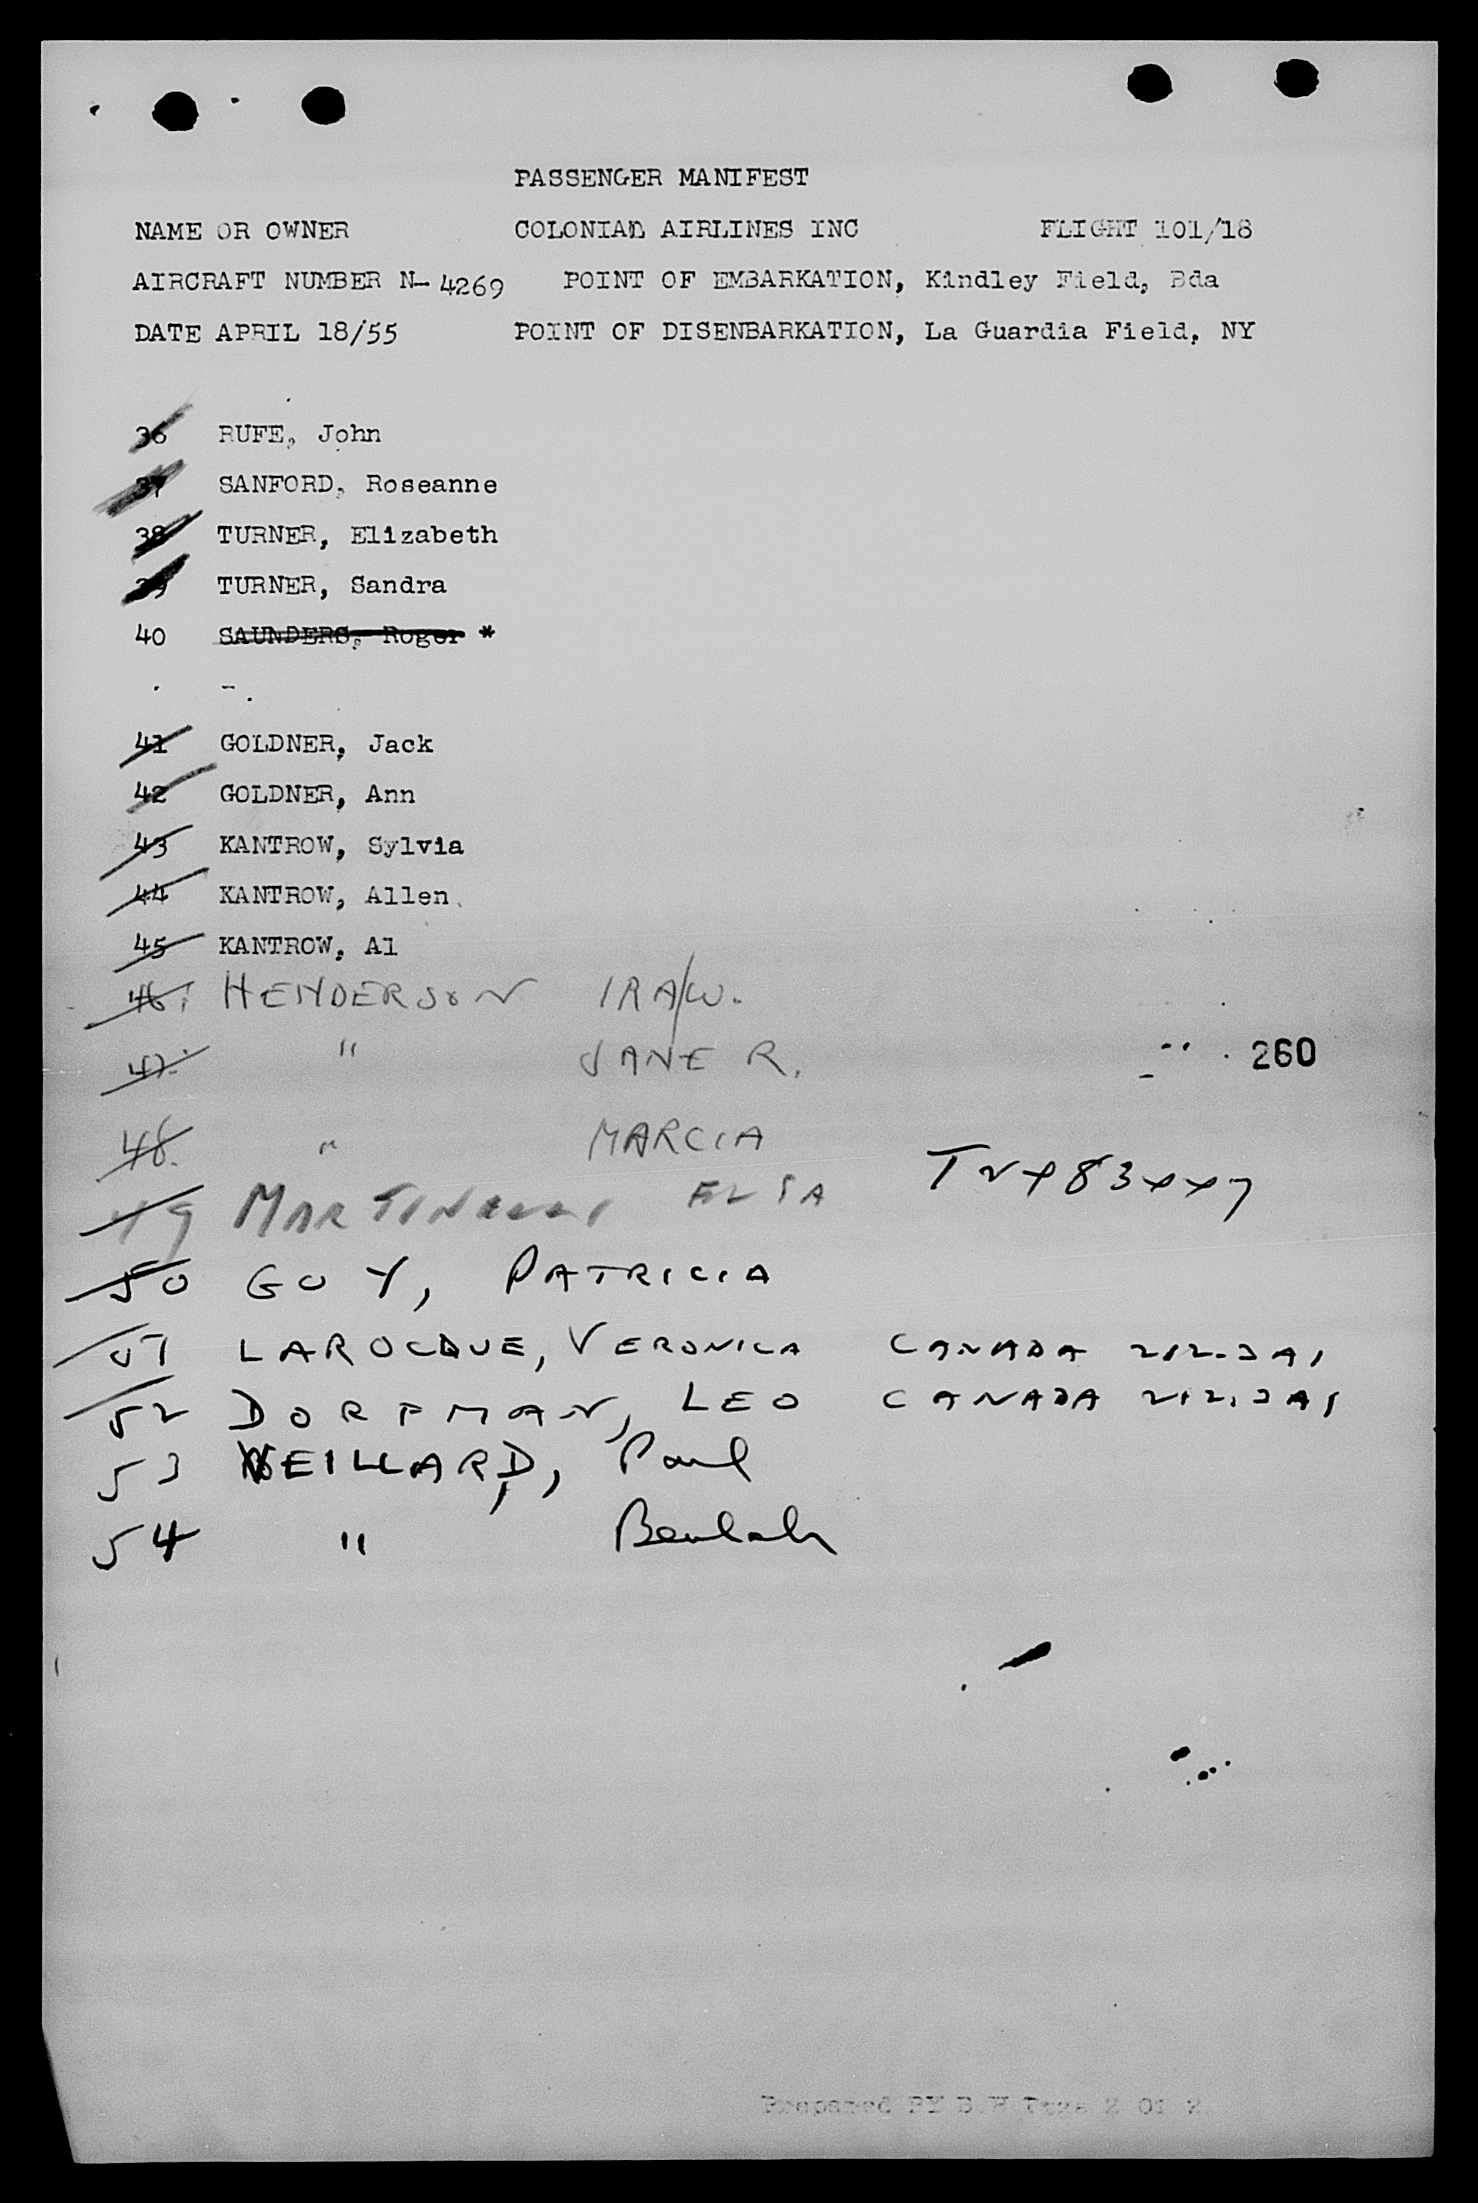 PASSENGER MANIFEST
NAME OR OWNER COLONIAL AIRLINES INC FLIGHT 101/18
AIRCRAFT NUMBER N-4269 POINT OF EMBARKATION, Kindley Field, Bda
DATE APRIL 18/55 POINT OF DISENBARKATION, La Guardia Field, NY
36 RUFE, John
37 SANFORD, Roseanne
38 TURNER, Elizabeth
39 TURNER, Sandra
40 SAUNDERS, Roger *
41 GOLDNER, Jack
42 GOLDNER, Ann
43 KANTROW, Sylvia
44 KANTROW, Allen
45 KANTROW, Al
46. HENDERSON IRA W.
47. " JANE R.
260
48. " MARCIA
49 ELSA
50 GUY, PATRICIA
51 LAROCQUE, VERONICA CANADA 212.3A1
52 DORFMAN, LEO CANADA 212.3A1
53 WEILLARD, Paul
54 " Beulah
Prepared BY Page 2 Of 2